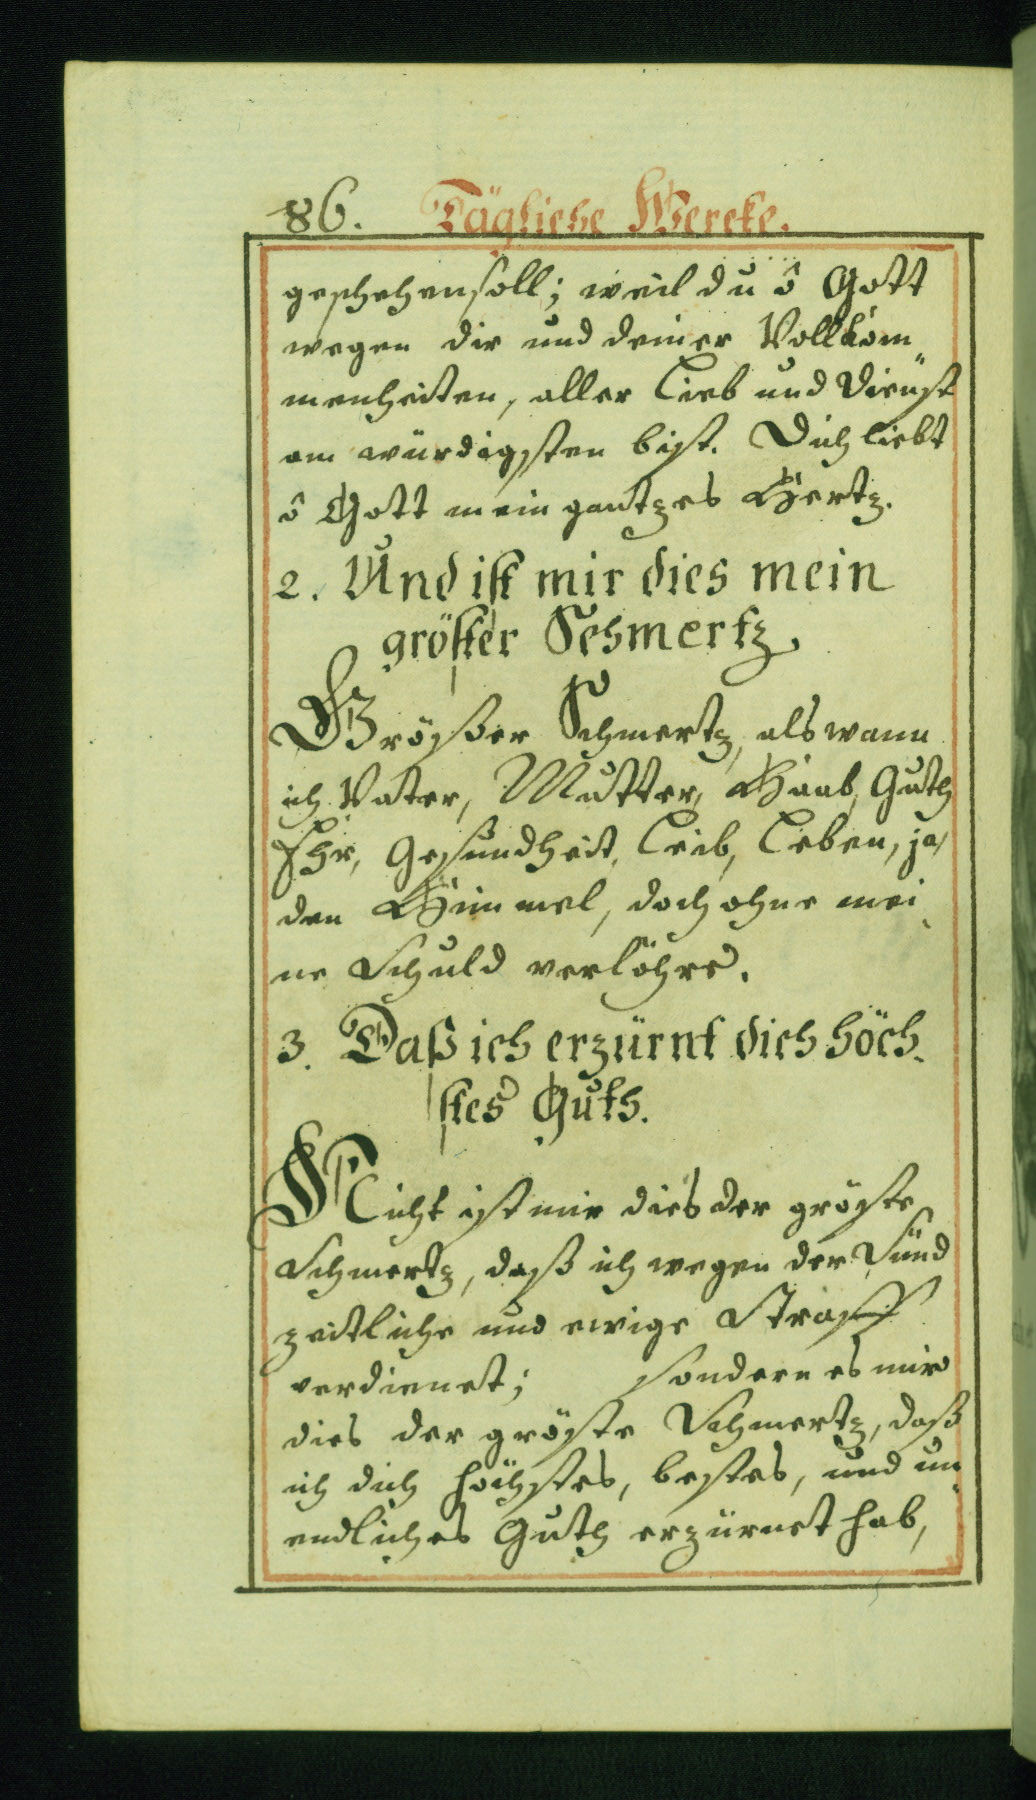 86. Tägliche Wercke.
geschehen soll; weil du ô Gott
wegen dir und deiner Vollkom
menheiten, aller Lieb und Dienst
am würdigsten bist. Dich liebt
ô Gott mein gantzes Hertz.
2. Und ist mir dies mein
gröster Schmertz.
Grösser Schmertz, als wann
ich Vater, Mutter, Haab, Guth
Ehr, Gesundheit, Leib, Leben, ja
den Himmel, doch ohne mei
ne Schuld verlöhre.
3. Daß ich erzürnt dich höch
stes Guth.
Nicht ist mir dies der gröste
Schmertz, daß ich wegen der Sünd
zeitliche und ewige Straff
verdienet; sondern es mir
dies der gröste Schmertz, daß
ich dich höchstes, bestes, und un
endliches Guth erzürnet hab,